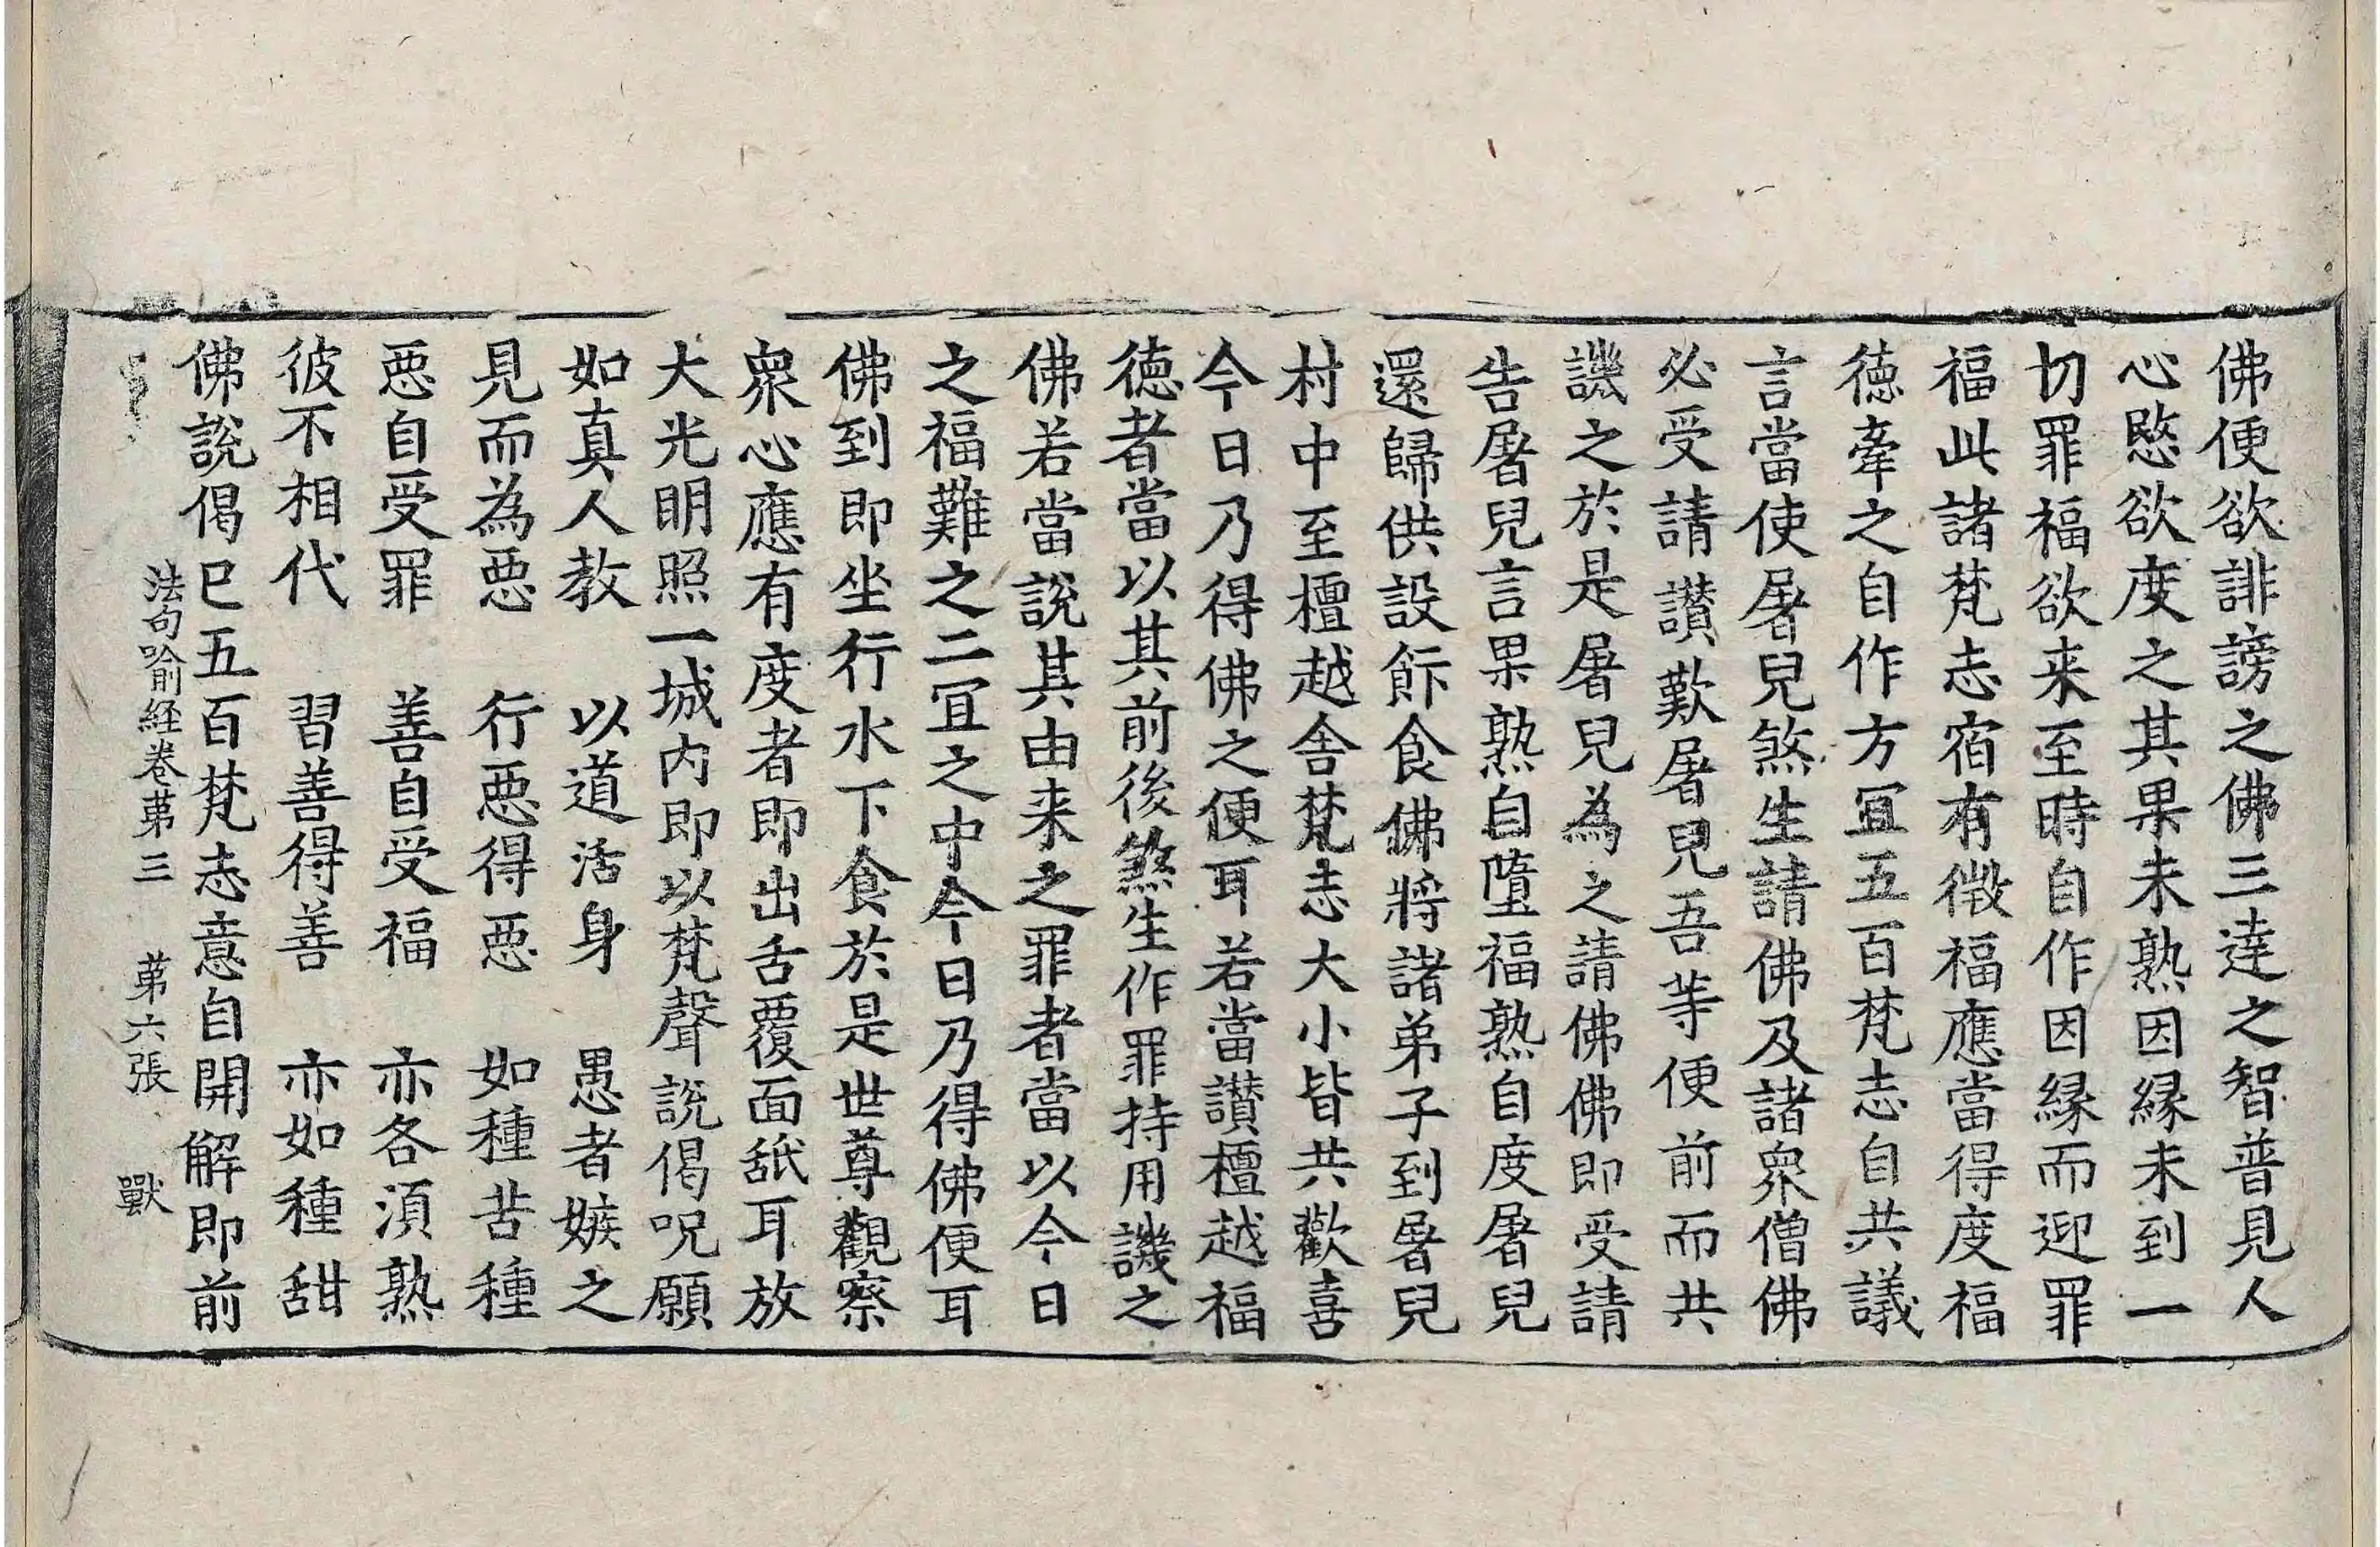 佛便欲誹謗之佛三達之智普見人
心愍欲度之其果未熟因縁未到一
切罪福欲来至時自作因縁而迎罪
福此諸梵志宿有微福應當得度福
徳牽之自作方冝五百梵志自共議
言當使屠兒煞生請佛及諸衆僧佛
必受請讃歎屠兒吾等便前而共
譏之於是屠兒為之請佛佛即受請
告屠兒言果熟自墮福熟自度屠兒
還歸供設飰食佛將諸弟子到屠兒
村中至檀越舎梵志大小皆共歡喜
今日乃得佛之便耳若當讃檀越福
徳者當以其前後煞生作罪持用譏之
佛若當說其由来之罪者當以今日
之福難之二冝之中今日乃得佛便耳
佛到即坐行水下食於是世尊觀察
衆心應有度者即出舌覆面舐耳放
大光明照一城内即以梵聲說偈呪願
如真人教　以道活身　愚者嫉之
見而為惡　行惡得惡　如種苦種
惡自受罪　善自受福　亦各湏熟
彼不相代　習善得善　亦如種甜
佛說偈已五百梵志意自開解即前
法句喻経卷苐三　苐六張　獸